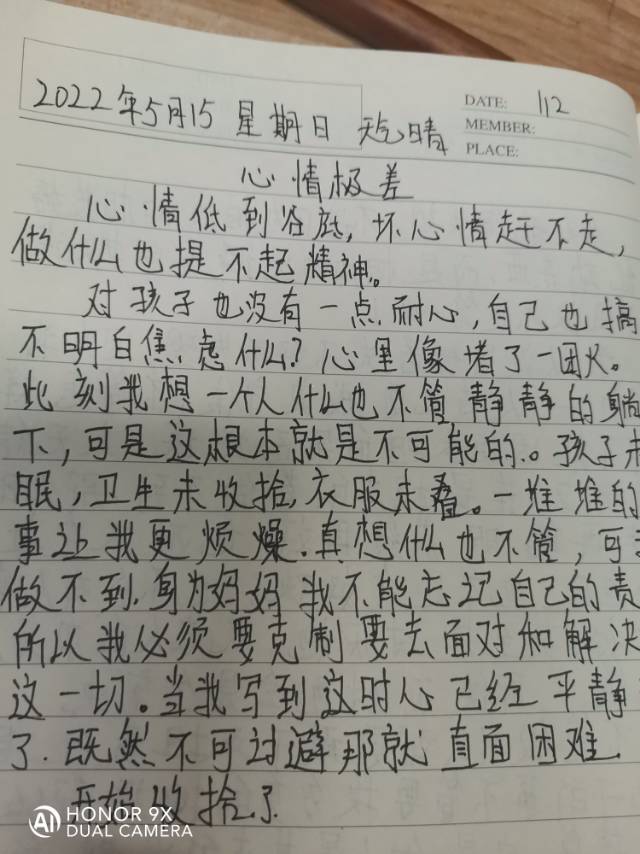 2022年5月15 星期日 天气晴
DATE: 112
MEMBER:
PLACE:
心情极差
心情低到谷底,坏心情赶不走,
做什么也提不起精神。
对孩子也没有一点耐心,自己也搞
不明白焦虑什么?心里像堵了一团火。
此刻我想一个人什么也不管静静的躺
下,可是这根本就是不可能的。孩子未
眠,卫生未收拾,衣服未叠。一堆堆的
事让我更烦燥.真想什么也不管,可我
做不到.身为妈妈我不能忘记自己的责
所以我必须要克制要去面对和解决
这一切。当我写到这时心已经平静
了.既然不可过避那就直面困难.
开始收拾了
HONOR 9X
AI DUAL CAMERA